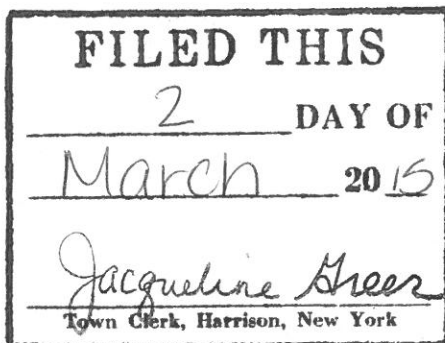 FILED THIS
2 DAY OF
March 2015
Jacqueline Greer
Town Clerk, Harrison, New York